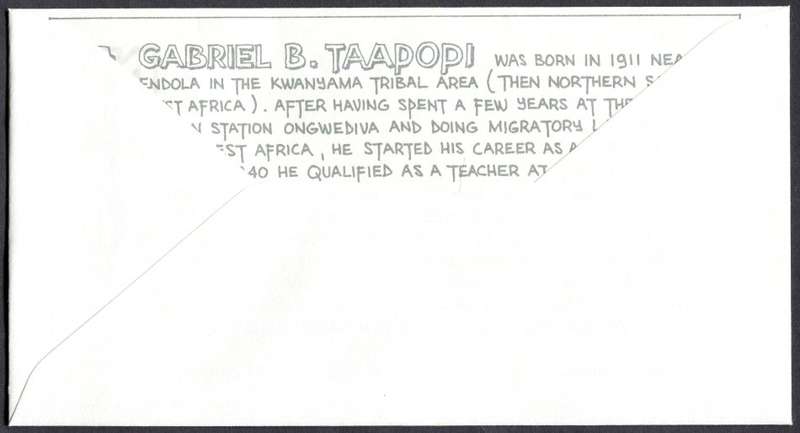 GABRIEL B. TAAPOPI WAS BORN IN 1911
IN THE KWANYAMA TRIBAL AREA (THEN NORTHERN
AFRICA). AFTER HAVING SPENT A FEW YEARS AT
STATION ONGWEDIVA AND DOING MIGRATORY
AFRICA, HE STARTED HIS CAREER AS A
HE QUALIFIED AS A TEACHER AT